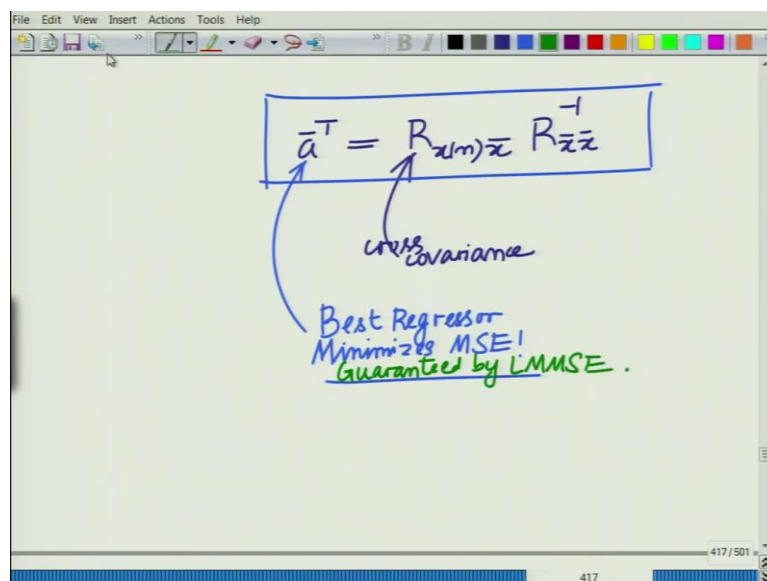 File Edit View Insert Actions Tools Help
B I
āᵀ = R_{x(n)x̄} R_{x̄x̄}^{-1}
cross
covariance
Best Regressor
Minimizes MSE!
Guaranteed by LMMSE.
417/501
417